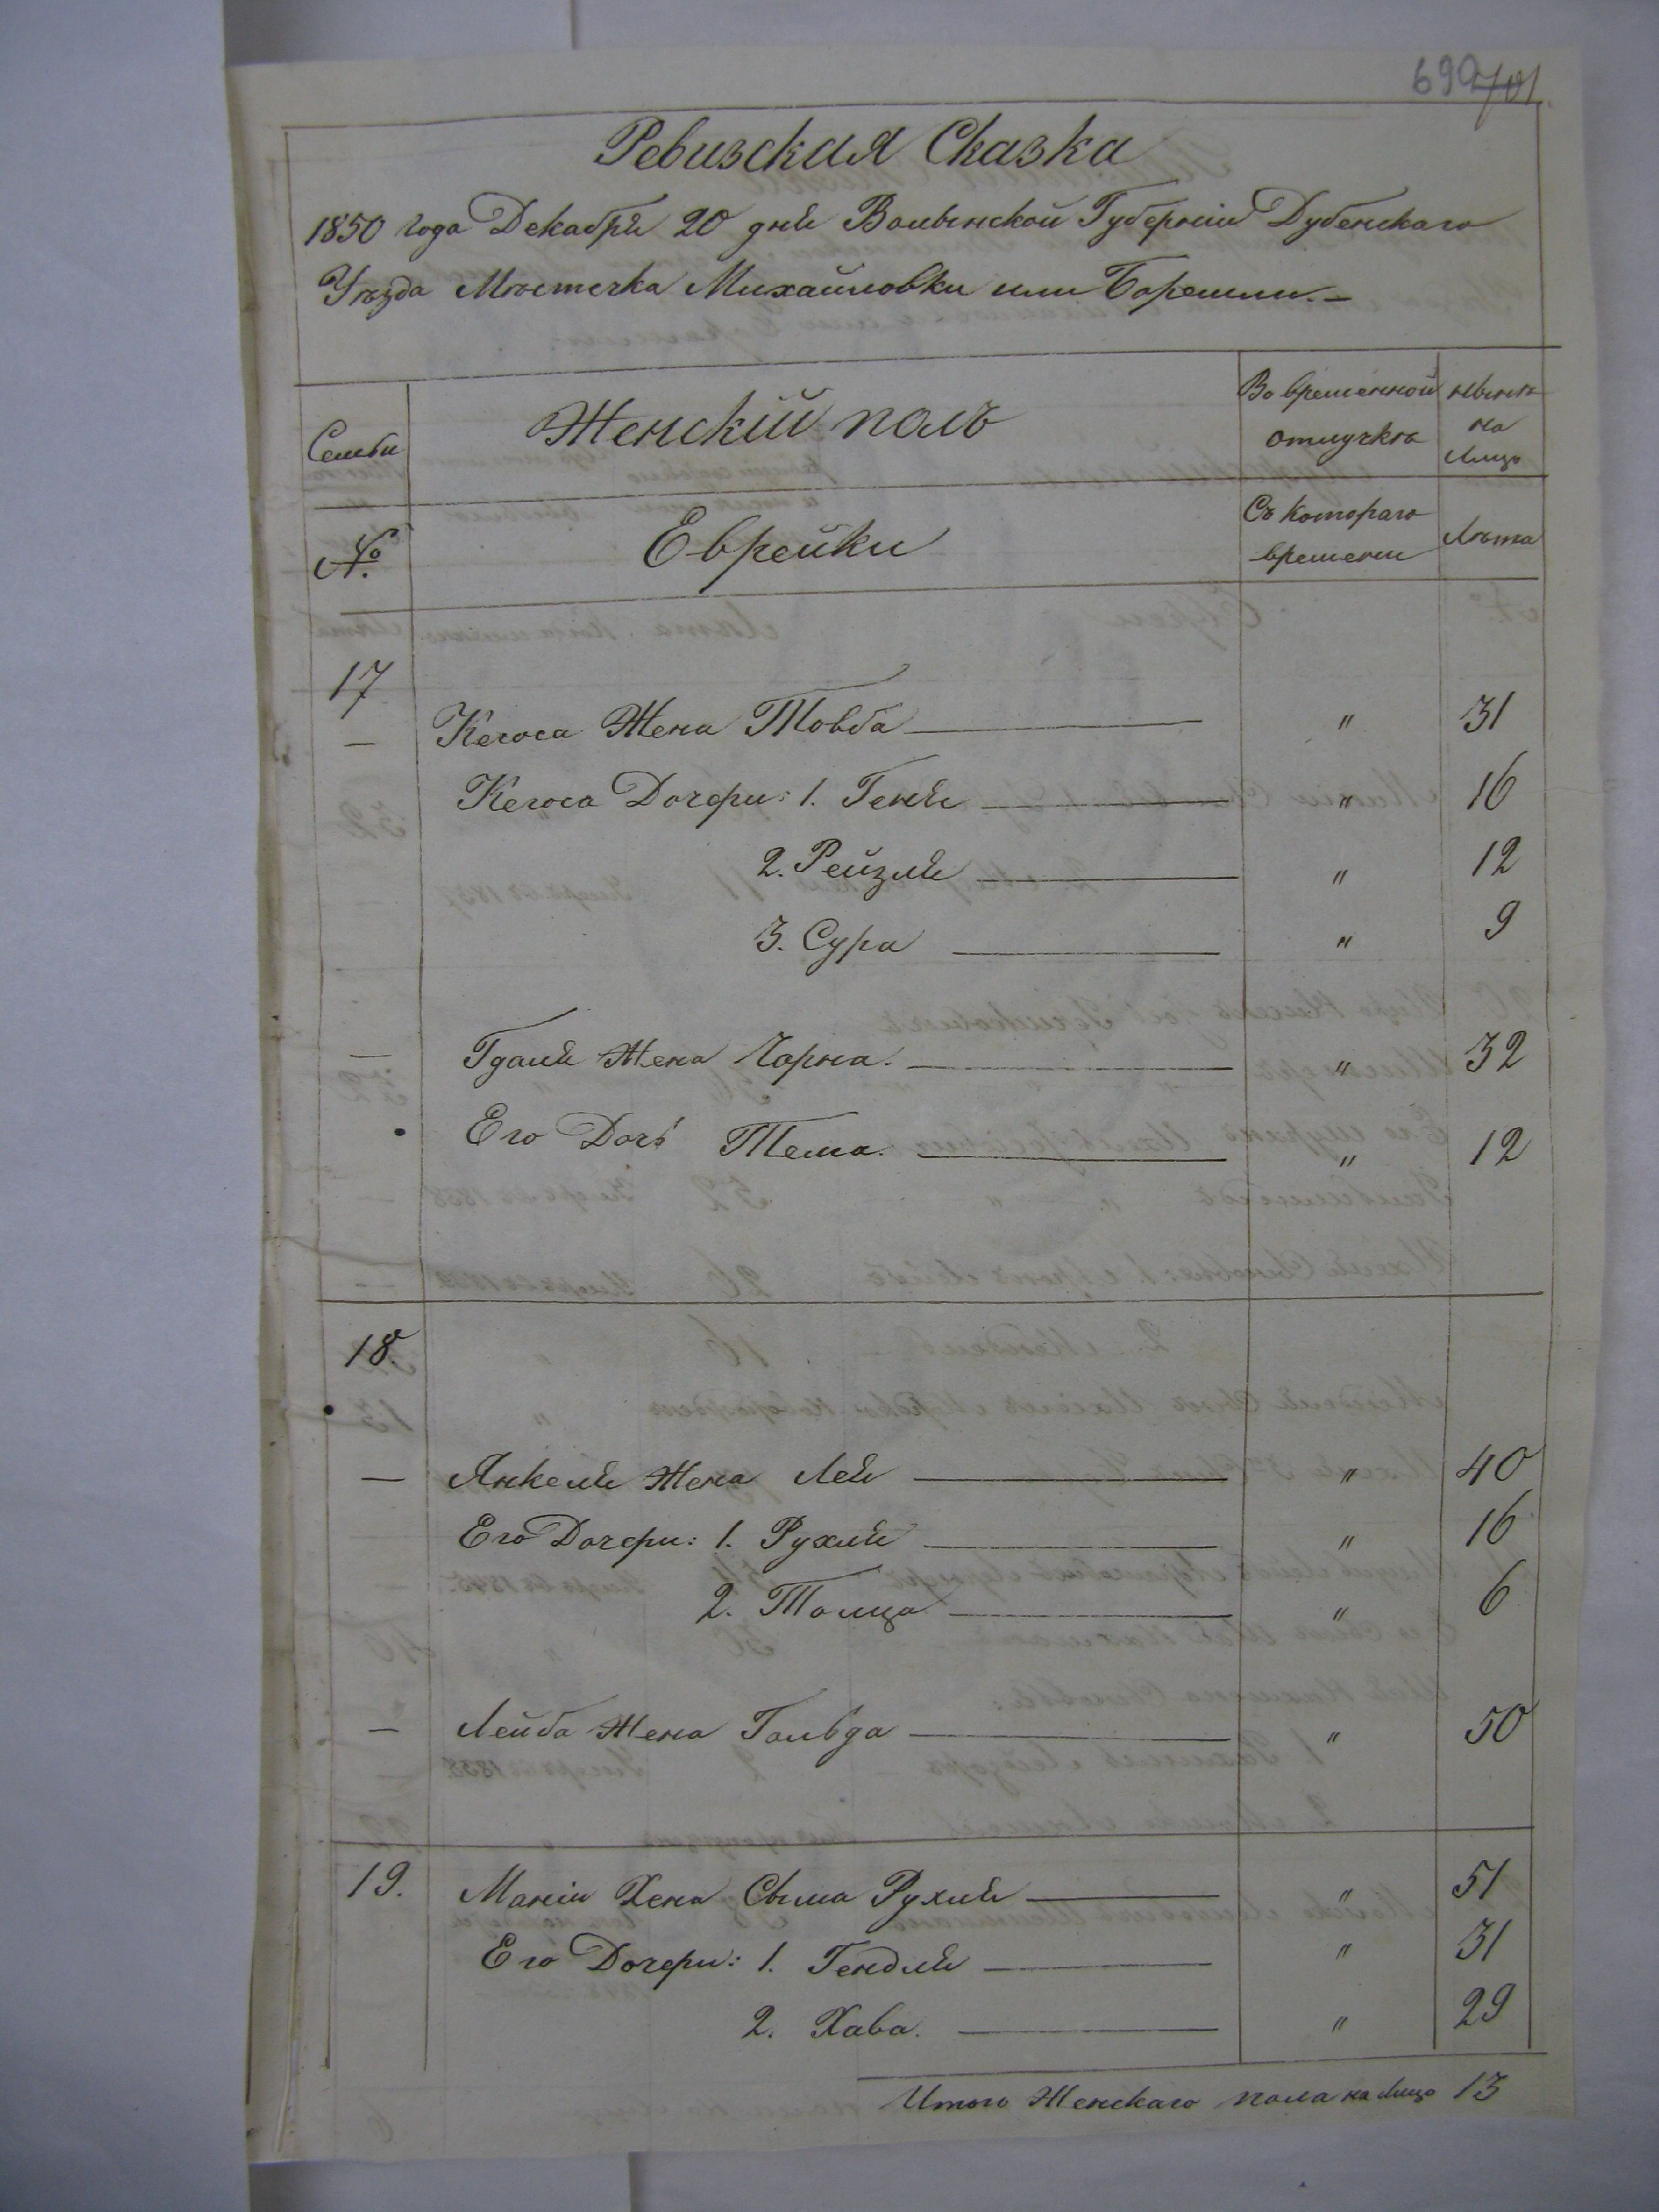 690 701
Ревизская Сказка
1850 года Декабря 20 дня Волынской Губерніи Дубенскаго
Уѣзда Мѣстечка Михайловки или Боремли.—
Семьи
Женскій полъ
Во временной отлучкѣ
нынѣ на лицо
№
Еврейки
Съ котораго времени
Лѣта
17
— Кегоса Жена Товба — " 31
Кегоса Дочери: 1. Геня — " 16
2. Рейзля — " 12
3. Сура — " 9
— Гдаля Жена Чарна. — " 32
Его Дочь Тема. — " 12
18.
— Янкеля Жена Лея — " 40
Его Дочери: 1. Рухля — " 16
2. Толца — " 6
— Лейба Жена Гольда — " 50
19. Манін Жена Сыма Рухля — " 51
Его Дочери: 1. Гендля — " 31
2. Хава. — " 29
Итого Женскаго пола на лицо 13